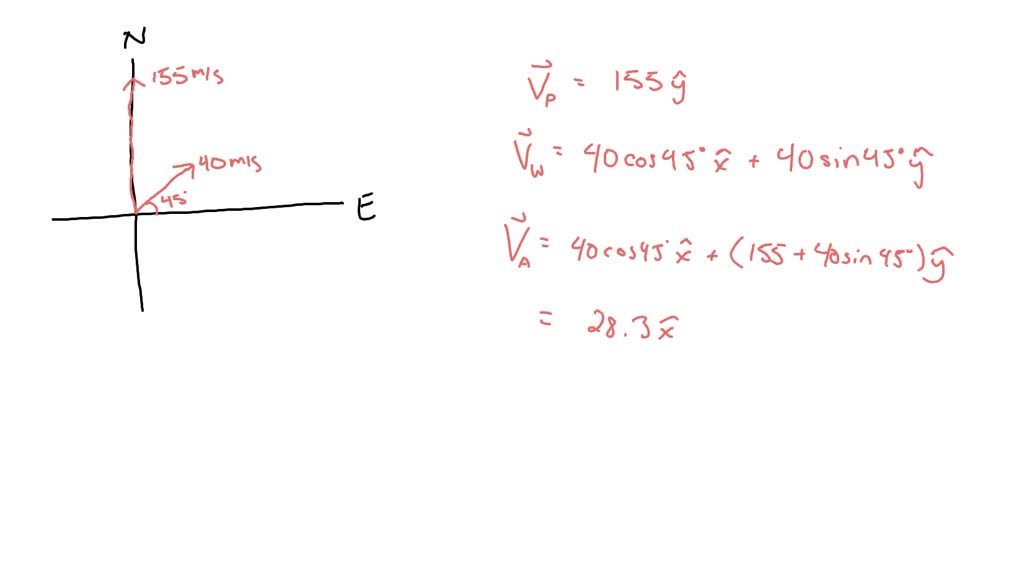 N
155 m/s
40 m/s
45°
E
V⃗_P = 155 ŷ
V⃗_W = 40 cos 45° x̂ + 40 sin 45° ŷ
V⃗_A = 40 cos 45° x̂ + (155 + 40 sin 45°) ŷ
= 28.3 x̂